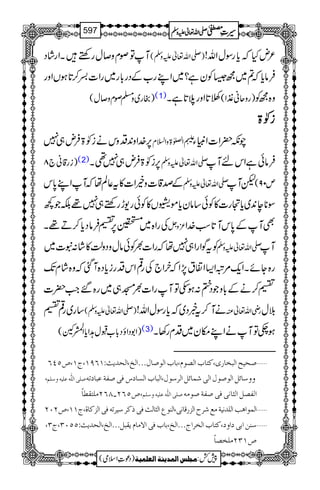 سیرتِ مصطفی صلی اللہ تعالیٰ علیہ وسلم 597
عرض کیا کہ یا رسول اللہ! (صلی اللہ تعالیٰ علیہ وسلم) آپ تو صوم وصال رکھتے ہیں۔ ارشاد
فرمایا کہ تم میں مجھ جیسا کون ہے؟ میں اپنے رب کے دربار میں رات بسر کرتا ہوں اور
وہ مجھ کو (روحانی غذا) کھلاتا اور پلاتا ہے۔ (1) (بخاری و مسلم صوم وصال)
زکوٰۃ
چونکہ حضرات انبیا علیہم الصلوٰۃ والسلام پر خداوند قدوس نے زکوٰۃ فرض ہی نہیں
فرمائی ہے اس لئے آپ صلی اللہ تعالیٰ علیہ وسلم پر زکوٰۃ فرض ہی نہیں تھی۔ (2) (زرقانی ج ۸
ص ۹۰) لیکن آپ صلی اللہ تعالیٰ علیہ وسلم کے صدقات و خیرات کا یہ عالم تھا کہ آپ اپنے پاس
سونا چاندی یا تجارت کا کوئی سامان یا مویشیوں کا کوئی ریوڑ رکھتے ہی نہیں تھے بلکہ جو کچھ
بھی آپ کے پاس آتا سب خدا عزوجل کی راہ میں مستحقین پر تقسیم فرما دیا کرتے تھے۔
آپ صلی اللہ تعالیٰ علیہ وسلم کو یہ گوارا ہی نہیں تھا کہ رات بھر کوئی مال و دولت کاشانہ نبوت میں
رہ جائے۔ ایک مرتبہ ایسا اتفاق پڑا کہ خراج کی رقم اس قدر زیادہ آ گئی کہ وہ شام تک
تقسیم کرنے کے باوجود ختم نہ ہو سکی تو آپ رات بھر مسجد ہی میں رہ گئے جب حضرت
بلال رضی اللہ تعالیٰ عنہ نے آ کر یہ خبر دی کہ یا رسول اللہ! (صلی اللہ تعالیٰ علیہ وسلم) ساری رقم تقسیم
ہو چکی تو آپ نے اپنے مکان میں قدم رکھا۔ (3) (ابوداؤد باب قبول ہدایا المشرکین)
صحیح البخاری، کتاب الصوم، باب الوصال...الخ، الحدیث: ۱۹۶۱، ج۱، ص۶۴۵
ووسائل الوصول الی شمائل الرسول، الباب السادس فی صفۃ عبادتہ صلی اللہ علیہ وسلم،
الفصل الثانی فی صفۃ صومہ صلی اللہ علیہ وسلم، ص۲۶۵-۲۶۸ ملتقطاً
المواھب اللدنیۃ مع شرح الزرقانی، النوع الثالث فی ذکر سیرتہ فی الزکاۃ، ج۱۱، ص۲۰۲
سنن ابی داود، کتاب الخراج...الخ، باب فی الامام یقبل...الخ، الحدیث: ۳۰۵۵، ج۳،
ص۲۳۱ ملخصاً
پیش کش: مجلس المدینۃ العلمیۃ (دعوتِ اسلامی)